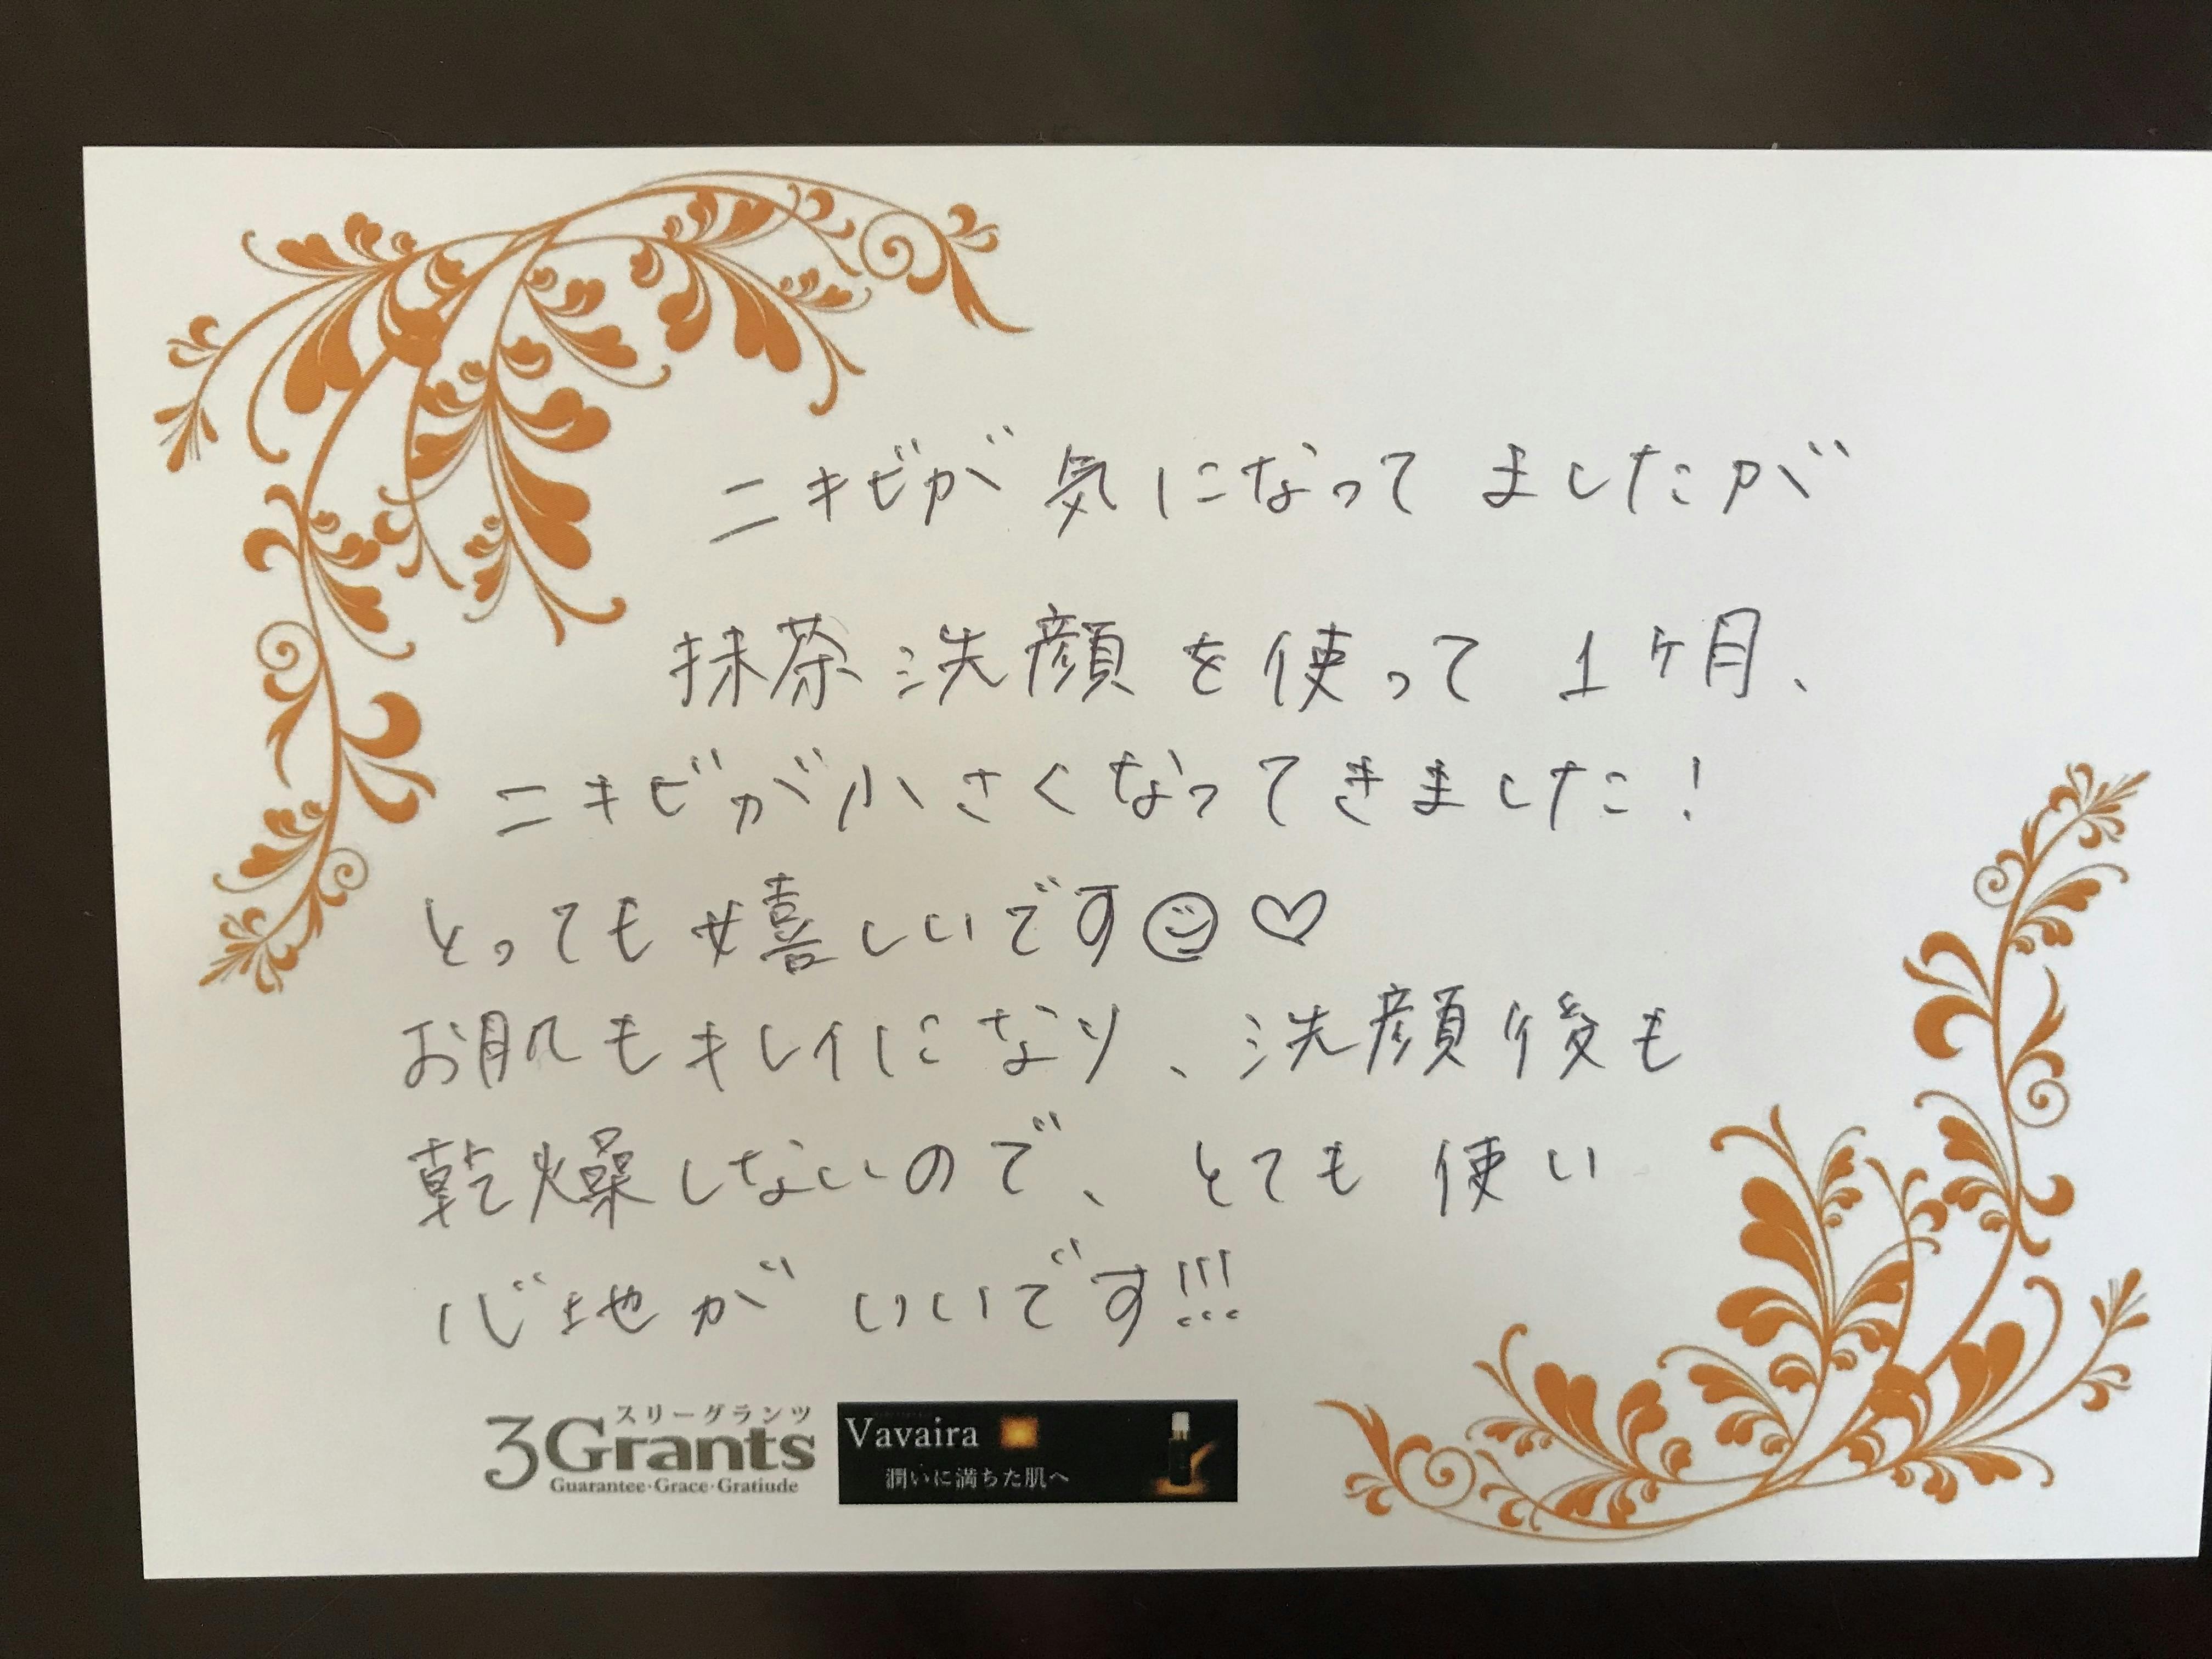 ニキビが気になってましたが
抹茶洗顔を使って1ヶ月、
ニキビが小さくなってきました!
とっても嬉しいです☺♡
お肌もキレイになり、洗顔後も
乾燥しないので、とても使い
心地がいいです!!!
スリーグランツ
3Grants
Guarantee・Grace・Gratiude
Vavaira
潤いに満ちた肌へ